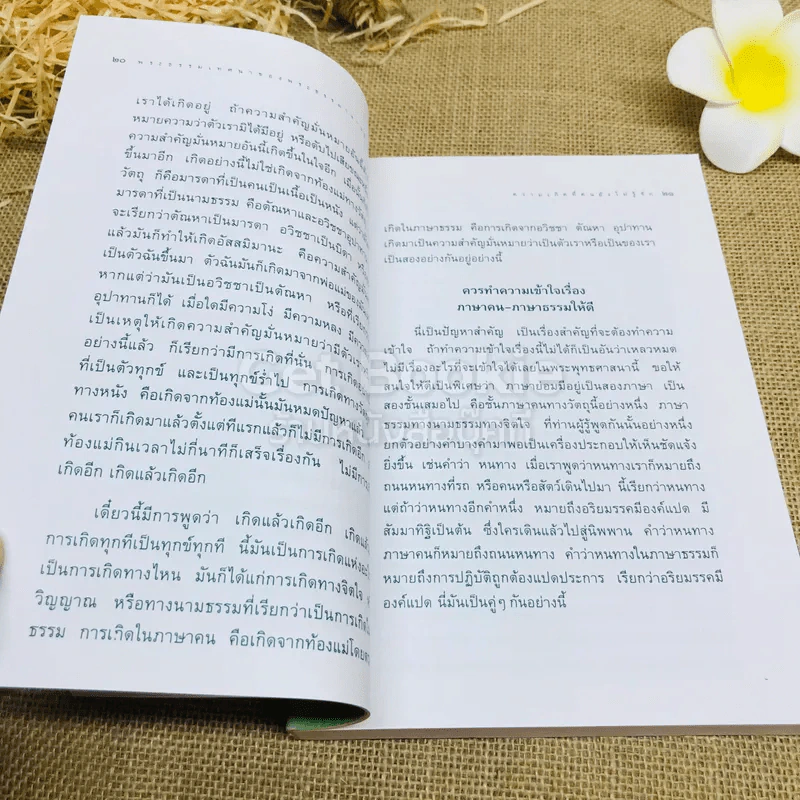 ๒๐
เราได้เกิดอยู่ ถ้าความสำคัญมั่นหมายอันนี้
หมายความว่าตัวเรามิได้มีอยู่ หรือดับไปเสีย
ความสำคัญมั่นหมายอันนี้เกิดขึ้นในใจอีก
ขึ้นมาอีก เกิดอย่างนี้ไม่ใช่เกิดจากท้องแม่ทาง
วัตถุ ก็มีมารดาที่เป็นคนเป็นเนื้อเป็นหนัง
มารดาที่เป็นนามธรรม คือตัณหาและอวิชชา
จะเรียกว่าตัณหาเป็นมารดา อวิชชาเป็นบิดา
แล้วมันก็ทำให้เกิดอัสสมิมานะ คือความสำคัญ
เป็นตัวฉันขึ้นมา ตัวฉันมันก็เกิดมาจากพ่อแม่ของ
หากแต่ว่ามันเป็นอวิชชาเป็นตัณหา หรือที่เรียก
อุปาทานก็ได้ เมื่อใดมีความโง่ มีความหลง
เป็นเหตุให้เกิดความสำคัญมั่นหมายว่ามีตัว
อย่างนี้แล้ว ก็เรียกว่ามีการเกิดที่นั่น
ที่เป็นตัวทุกข์ และเป็นทุกข์ร่ำไป การเกิด
ทางหนัง คือเกิดจากท้องแม่นั้นมันหมดปัญหา
คนเราก็เกิดมาแล้วตั้งแต่ทีแรกแล้วก็ไม่มีการเกิดอีก
ท้องแม่กินเวลาไม่กี่นาทีก็เสร็จเรื่องกัน
เกิดอีก เกิดแล้วเกิดอีก
เดี๋ยวนี้มีการพูดว่า เกิดแล้วเกิดอีก
การเกิดทุกทีเป็นทุกข์ทุกที นี้มันเป็นการเกิดแห่ง
เป็นการเกิดทางไหน มันก็ได้แก่การเกิดทางจิตใจ
วิญญาณ หรือทางนามธรรมที่เรียกว่าเป็นการเกิด
ธรรม การเกิดในภาษาคน คือเกิดจากท้องแม่
๒๑
เกิดในภาษาธรรม คือการเกิดจากอวิชชา ตัณหา อุปาทาน
เกิดมาเป็นความสำคัญมั่นหมายว่าเป็นตัวเราหรือเป็นของเรา
เป็นสองอย่างกันอยู่อย่างนี้
ควรทำความเข้าใจเรื่อง
ภาษาคน-ภาษาธรรมให้ดี
นี่เป็นปัญหาสำคัญ เป็นเรื่องสำคัญที่จะต้องทำความ
เข้าใจ ถ้าทำความเข้าใจเรื่องนี้ไม่ได้ก็เป็นอันว่าเหลวหมด
ไม่มีเรื่องอะไรที่จะเข้าใจได้เลยในพระพุทธศาสนานี้ ขอให้
สนใจให้ดีเป็นพิเศษว่า ภาษาย่อมมีอยู่เป็นสองภาษา เป็น
สองชั้นเสมอไป คือชั้นภาษาคนทางวัตถุนี้อย่างหนึ่ง ภาษา
ธรรมทางนามธรรมทางจิตใจ ที่ท่านผู้รู้พูดกันนั้นอย่างหนึ่ง
ยกตัวอย่างคำบางคำมาพอเป็นเครื่องประกอบให้เห็นชัดแจ้ง
ยิ่งขึ้น เช่นคำว่า หนทาง เมื่อเราพูดว่าหนทางเราก็หมายถึง
ถนนหนทางที่รถ หรือคนหรือสัตว์เดินไปมา นี้เรียกว่าหนทาง
แต่ถ้าว่าหนทางอีกคำหนึ่ง หมายถึงอริยมรรคมีองค์แปด มี
สัมมาทิฐิเป็นต้น ซึ่งใครเดินแล้วไปสู่นิพพาน คำว่าหนทาง
ภาษาคนก็หมายถึงถนนหนทาง คำว่าหนทางในภาษาธรรมก็
หมายถึงการปฏิบัติถูกต้องแปดประการ เรียกว่าอริยมรรคมี
องค์แปด นี่มันเป็นคู่ๆ กันอย่างนี้